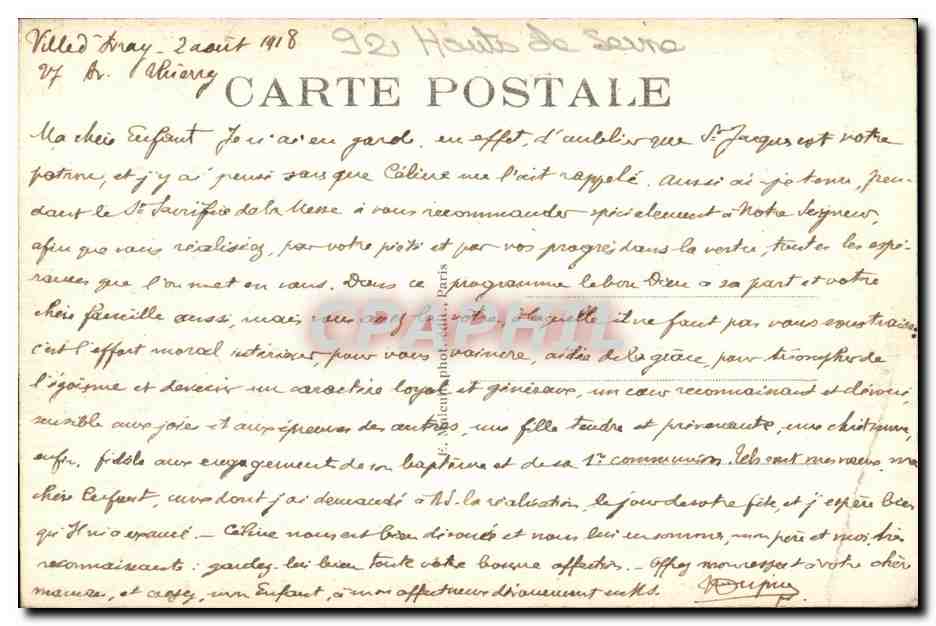 Ville d'Avray - 2 août 1918
27 Av. Thierry
92, Hauts de Seine
CARTE POSTALE
Ma chère Enfant Je n'ai eu garde, en effet, d'oublier que St Jacques est votre
patron, et j'y ai pensé sans que Céline me l'ait rappelé. Aussi ai-je tenu, pen-
dant le St Sacrifice de la Messe à vous recommander spécialement à Notre Seigneur,
afin que vous réalisiez, par votre piété et par vos progrès dans la vertu, toutes les espé-
rances que l'on met en vous. Dans ce programme le bon Dieu a sa part et votre
chère famille aussi, mais vous avez la vôtre, à laquelle il ne faut pas vous soustraire:
c'est l'effort moral intérieur, pour vous vaincre, aidée de la grâce, pour triompher de
l'égoïsme et devenir un caractère loyal et généreux, un cœur reconnaissant et dévoué,
sensible aux joies et aux épreuves des autres, une fille tendre et prévenante, une chrétienne,
enfin, fidèle aux engagements de son baptême et de sa 1re communion. Tels sont mes vœux, ma
chère Enfant, ceux dont j'ai demandé à N.S. la réalisation, le jour de votre fête, et j'espère bien
qu'Il m'a exaucé. - Céline nous est bien dévouée et nous lui en sommes, mon père et moi, très
reconnaissants: gardez-lui bien toute votre bonne affection. - Offrez mon respect à votre chère
maman, et croyez, mon Enfant, à mon affectueux dévouement en N.S.
E. Malcuit, phot. édit., Paris
CPAPHIL